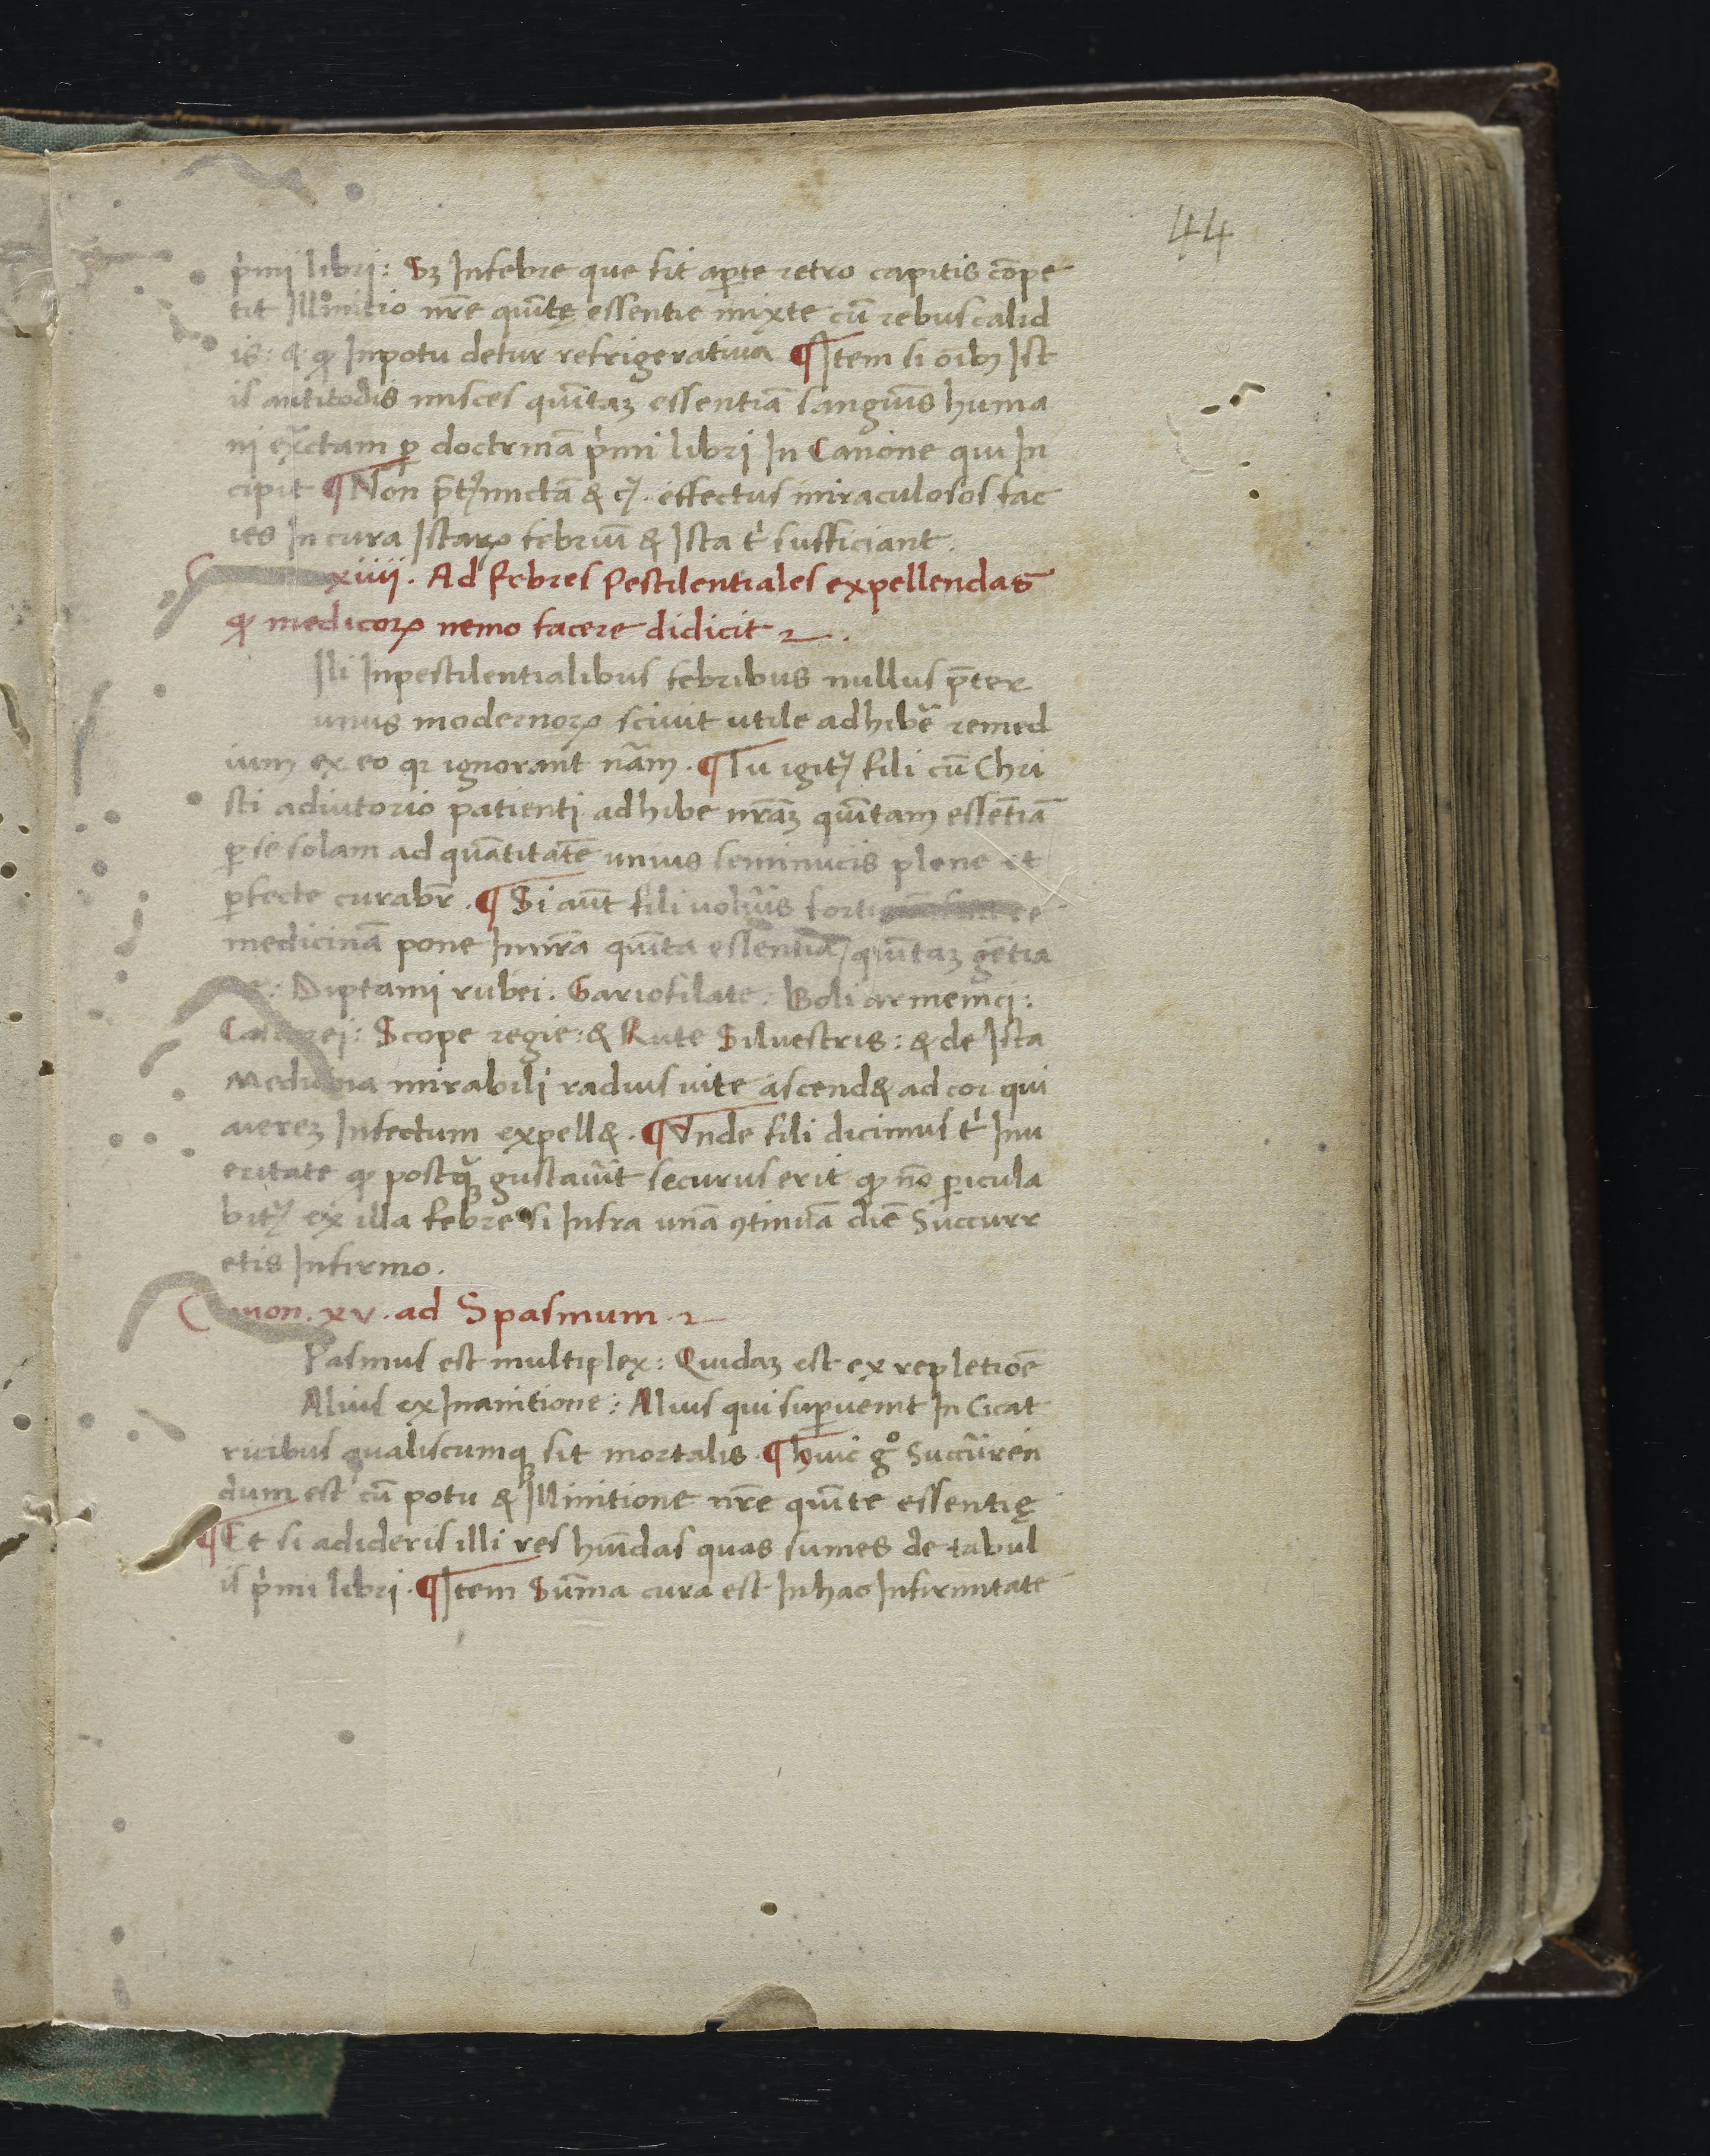 44
p̍mi libri: Sꝫ Infebre que fit aꝑte retro capitis cōpe
tit Illinitio nr̄e quītę essentie mixte cū rebus calid
is: & ꝙ Inpotu detur refrigeratiua ¶ Item si oībꝫ Ist
is antitodis misces quītaꝫ essentiā sanguīs huma
ni ex̃ctam ꝑ doctrinā p̍mi libri In Canone qui In
cipit ¶ Non & effectus miraculosos fac
ies In cura Istaꝝ febriū & Ista t̍ sufficiant.
xiiii. Ad febres Pestilentiales expellendas
ꝙ medicoꝝ nemo facere didicit
Ili Inpestilentialibus febribus nullus p̄ter
unus modernoꝝ sciuit utile adhibẽ remed
ium ex eo qꝛ ignorant nãm. ¶ Tu igitᷣ fili cū Chri
sti adiutorio patienti adhibe nr̄aꝫ quītam essētiā
ꝑ se solam ad quātitatē unius seminucis plene et
ꝑfecte curabr̄. ¶ Si aūt fili uolũis
medicinā pone Innr̄a quīta essentiā quītaꝫ gētia
Diptami rubei. Gariofilate. Boli armenici:
Scope regie: & Rute Siluestris: & de Ista
Medicina mirabili radius uite ascend& ad cor qui
aiereꝫ Infectum expell&. ¶ Vnde fili dicimus t̍ Inu
eritate ꝙ postq̃ꝫ gustaũit securus erit ꝙ nō ꝑicula
bitᷣ ex illa febre si Infra unā ꝯtinuā diē Succurr
etis Infirmo.
Canon. xv. ad Spasmum
Pasmus est multiplex: Quidaꝫ est ex repletioē
Alius ex Inanitione: Alius qui suꝑuenit In Cicat
ricibus qualiscumqꝫ sit mortalis. ¶ huic gͦ Succũren
dum est cū potu & Illinitione nr̄e quīte essentię
¶ Et si adideris illi res huīdas quas sumes de tabul
is p̍mi libri. ¶ Item Sūma cura est Inhac Infirmitate